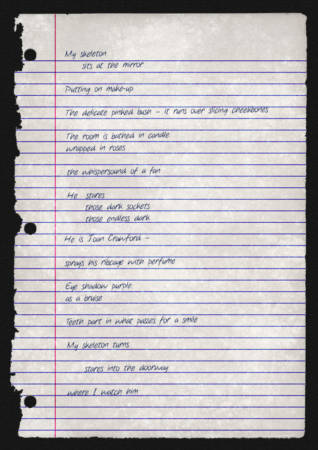 My skeleton
sits at the mirror
Putting on make-up
The delicate pinked blush - it runs over slicing cheekbones
The room is bathed in candle
wrapped in roses
the whispersound of a fan
He stares
those dark sockets
those endless dark
He is Joan Crawford -
sprays his ribcage with perfume
Eye shadow purple
as a bruise
Teeth part in what passes for a smile
My skeleton turns
stares into the doorway
where I watch him